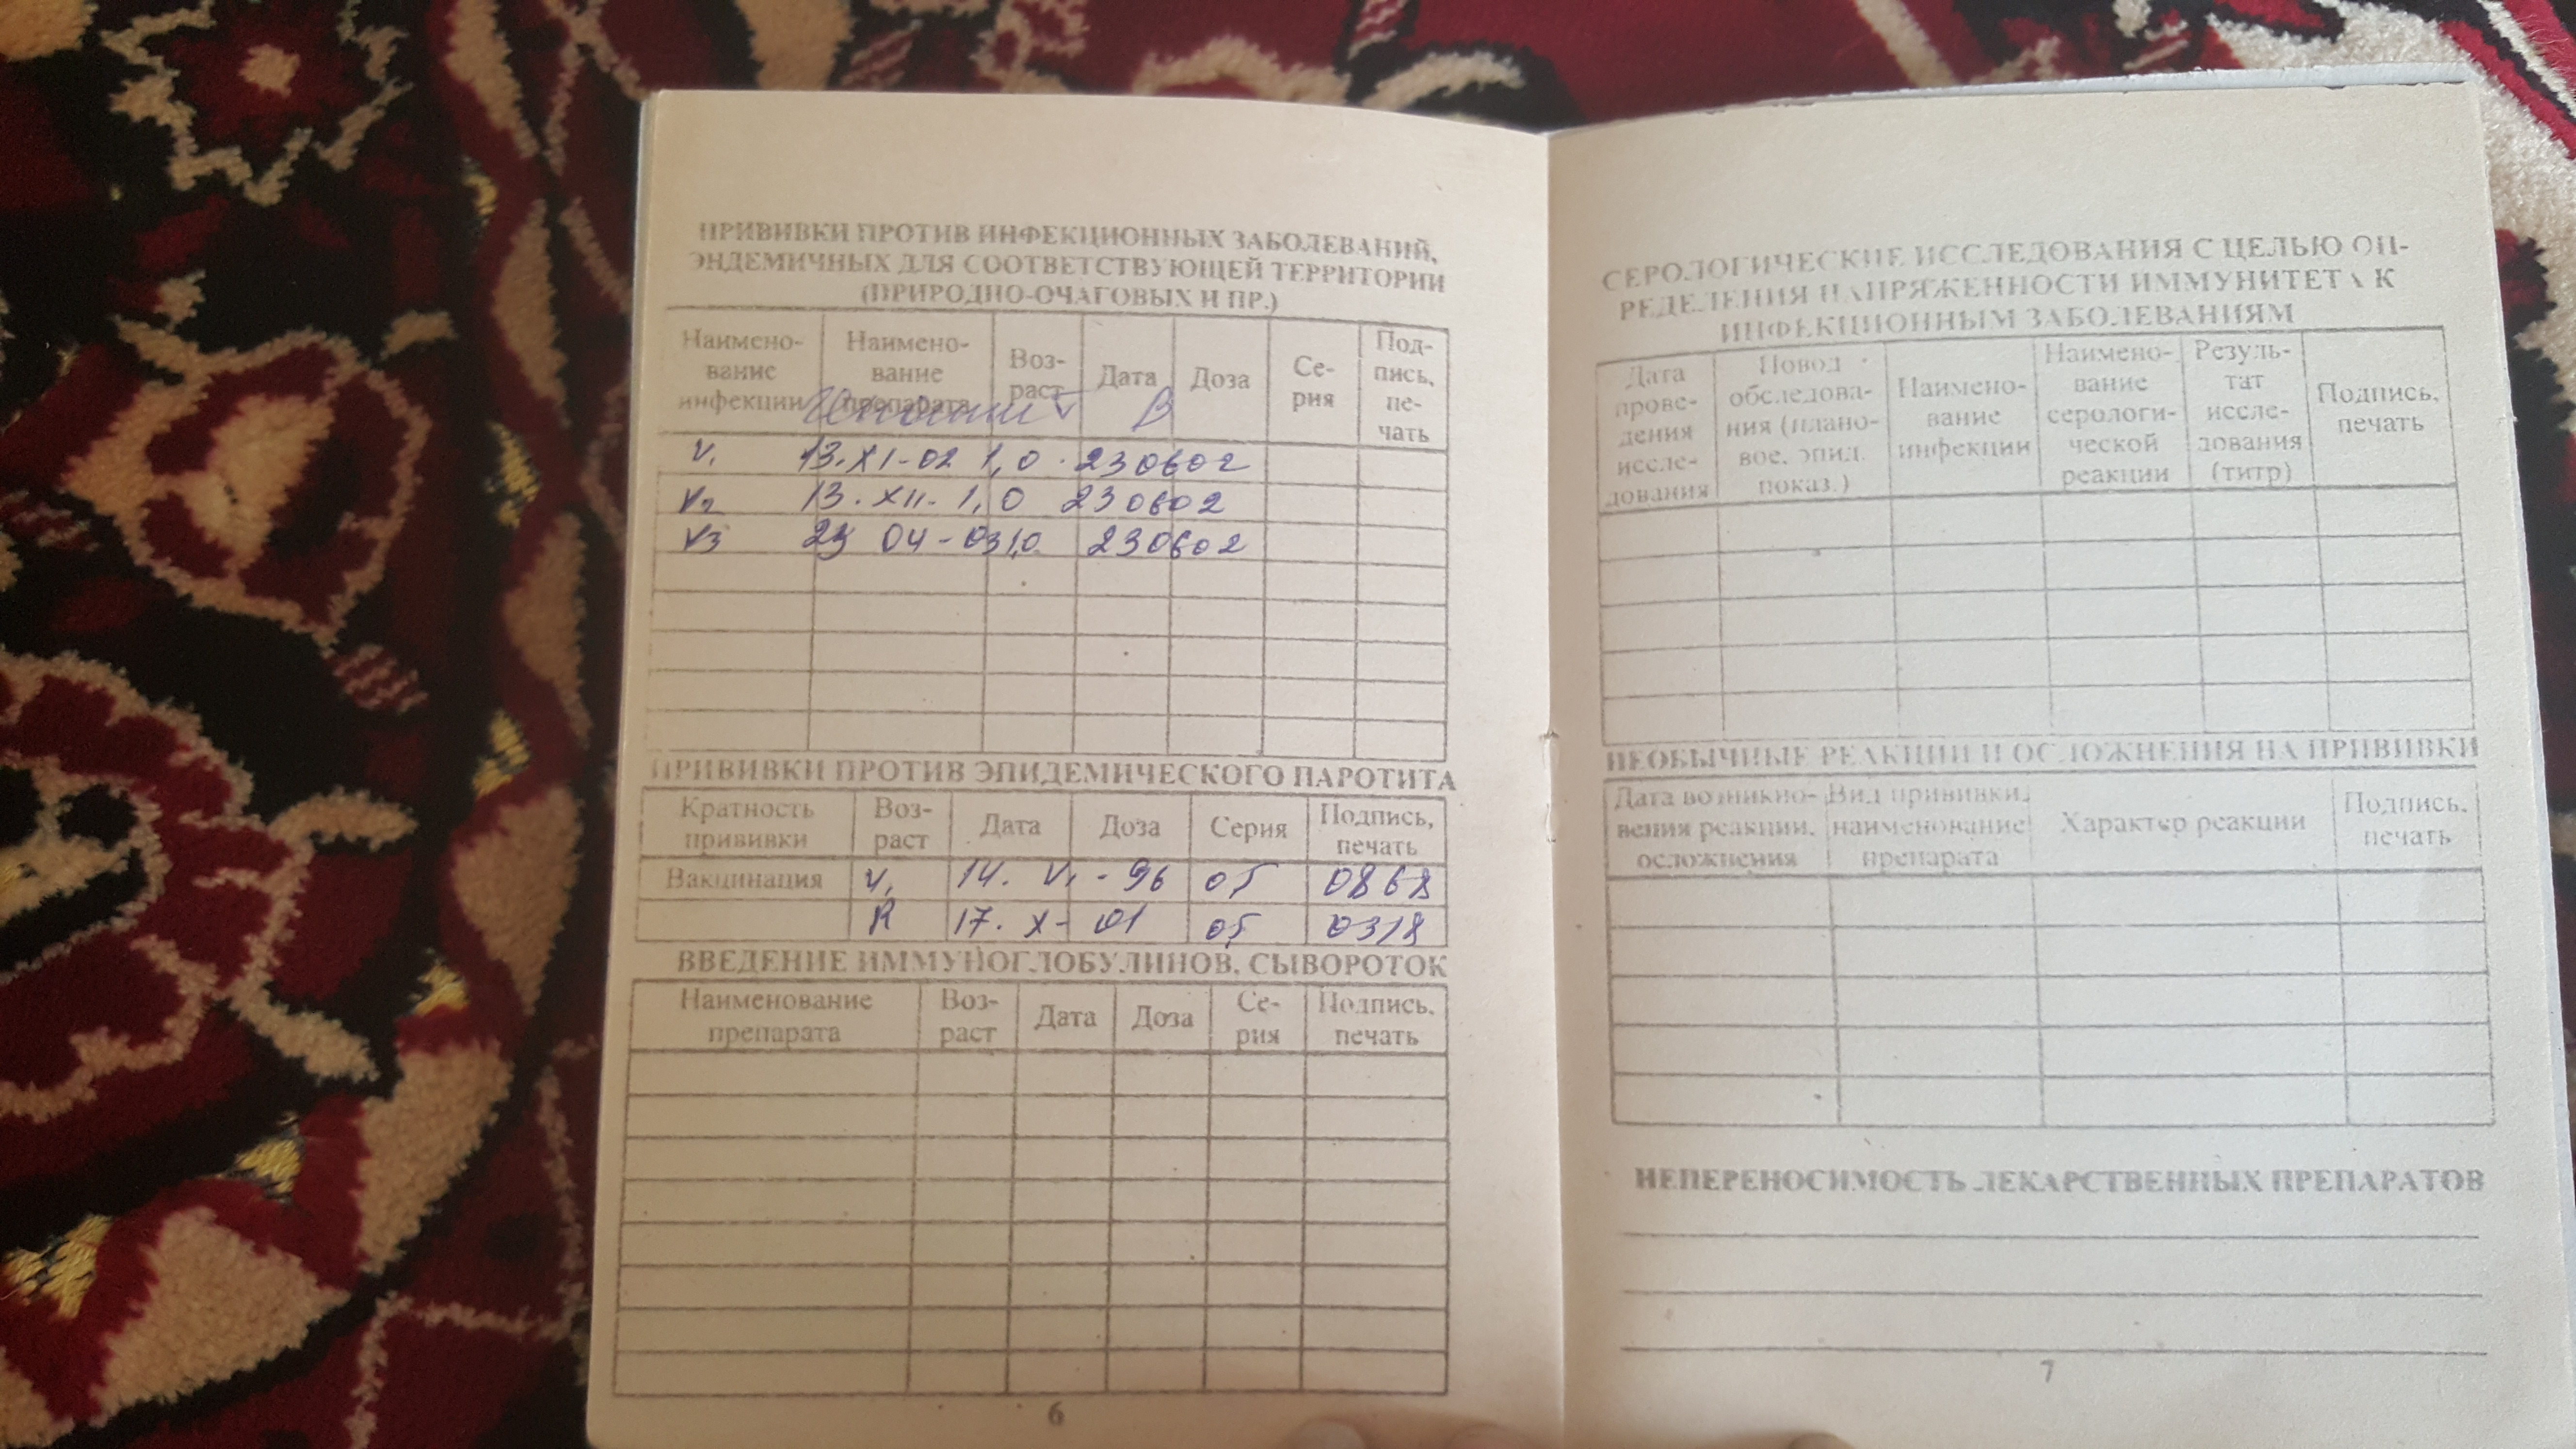 ПРИВИВКИ ПРОТИВ ИНФЕКЦИОННЫХ ЗАБОЛЕВАНИЙ,
ЭНДЕМИЧНЫХ ДЛЯ СООТВЕТСТВУЮЩЕЙ ТЕРРИТОРИИ
(ПРИРОДНО-ОЧАГОВЫХ И ПР.)
Наимено-вание инфекции Наимено-вание препарата Воз-раст Дата Доза Се-рия Под-пись, пе-чать
В
V1 13.XI-02 1,0 230602
V2 13.XII- 1,0 230602
V3 04-03 1,0 230602
ПРИВИВКИ ПРОТИВ ЭПИДЕМИЧЕСКОГО ПАРОТИТА
Кратность прививки Воз-раст Дата Доза Серия Подпись, печать
Вакцинация V1 14. VI - 96 05 0868
R 17. X- 01 05 0318
ВВЕДЕНИЕ ИММУНОГЛОБУЛИНОВ, СЫВОРОТОК
Наименование препарата Воз-раст Дата Доза Се-рия Подпись, печать
6
СЕРОЛОГИЧЕСКИЕ ИССЛЕДОВАНИЯ С ЦЕЛЬЮ ОП-
РЕДЕЛЕНИЯ НАПРЯЖЕННОСТИ ИММУНИТЕТА К
ИНФЕКЦИОННЫМ ЗАБОЛЕВАНИЯМ
Дата прове-дения иссле-дования Повод обследова-ния (плано-вое, эпид. показ.) Наимено-вание инфекции Наимено-вание серологи-ческой реакции Резуль-тат иссле-дования (титр) Подпись, печать
НЕОБЫЧНЫЕ РЕАКЦИИ И ОСЛОЖНЕНИЯ НА ПРИВИВКИ
Дата возникно-вения реакции, осложнения Вид прививки, наименование препарата Характер реакции Подпись, печать
НЕПЕРЕНОСИМОСТЬ ЛЕКАРСТВЕННЫХ ПРЕПАРАТОВ
7